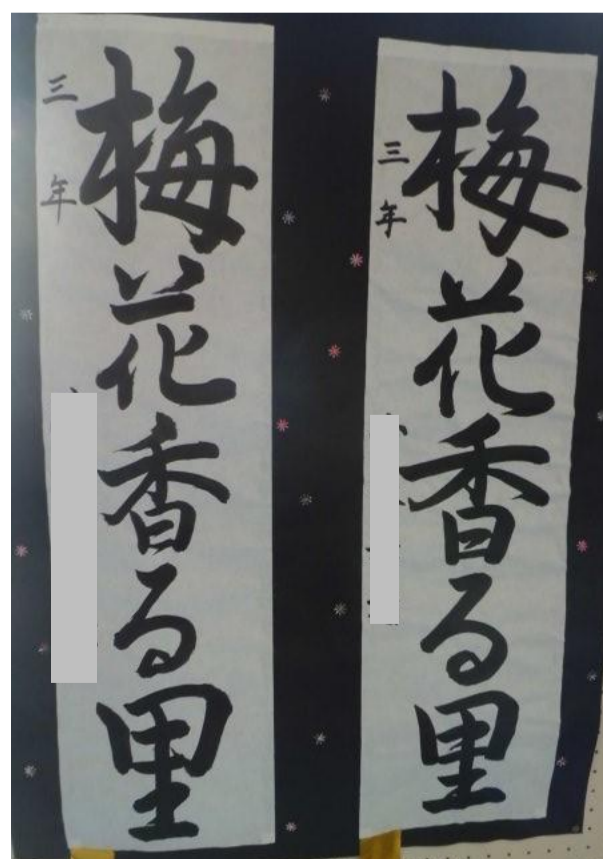 梅花香る里
三年
梅花香る里
三年